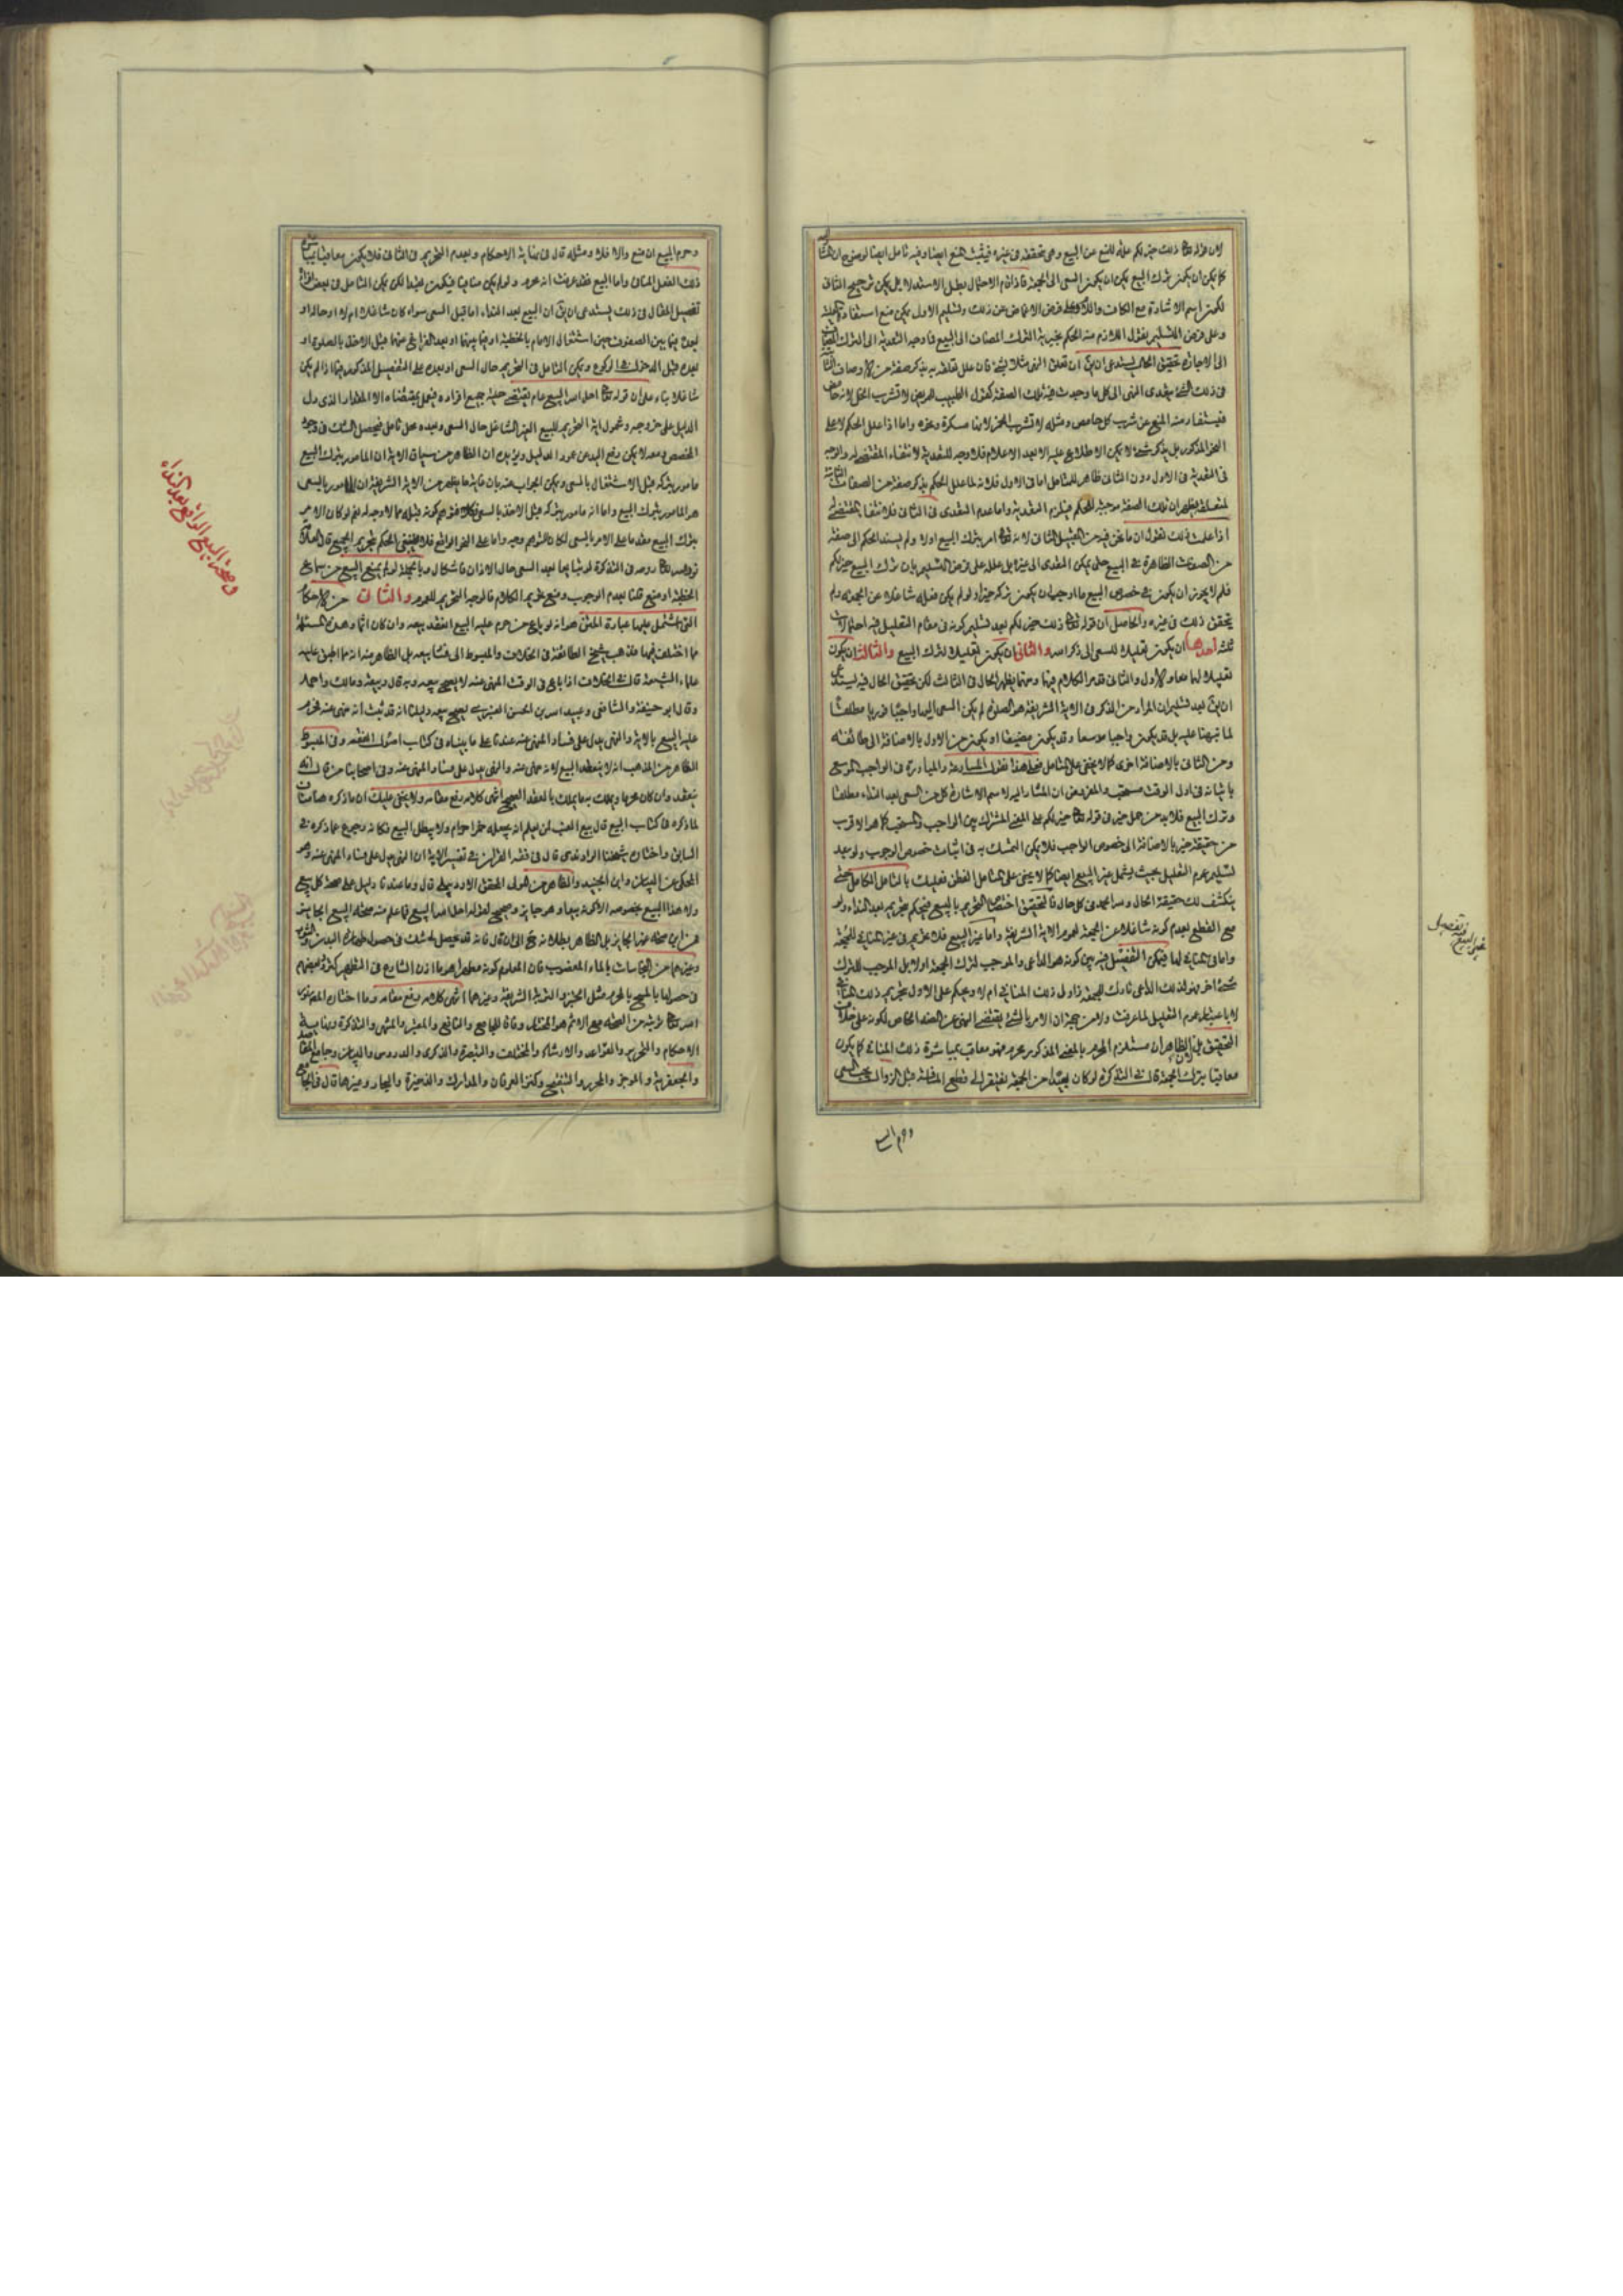 لان قوله تعالى ذلك خير لكم علة للمنع عن البيع وهى متحققة فى غيره فيثبت المنع ايضا وفيه تامل ايضا لوضوح ان هذا
كما يمكن ان يكون ترك البيع يمكن ان يكون السعى الى الجمعة فاذا قام الاحتمال بطل الاستدلال بل يمكن ترجيح الثانى
لكون اسم الاشارة مع الكاف و على فرض الاغماض عن ذلك وتسليم الاول يمكن منع استفادة
وعلى فرض التسليم نقول اللازم منه الحكم بخيرية الترك المضاف الى البيع فاوجه التعدية الى الترك المضاف
الى الاجارة تحقيق الحال يستدعى ان يق ان تعلق النهى مثلا بشئ فان علل تعلقه به بذكر صفة من الاوصاف
فى ذلك الشئ يتعدى النهى الى كل ما وجدت فيه تلك الصفة كقول الطبيب للمريض لا تشرب الخل لانه حامض
فيستفاد منه المنع عن شرب كل حامض ومثله لا تشرب الخمر لانها مسكرة ونحوه واما اذا علل الحكم لا على
النحو المذكور بل بذكر شئ لا يمكن الاطلاع عليه الا بعد الاعلام فلا وجه للتعدية لانتفاء المقتضى له والوجه
فى التعدية فى الاول دون الثانى ظاهر للمتامل اما فى الاول فلانه لما علل الحكم بذكر صفة من الصفات الثابتة
لمتعلقه يظهر ان تلك الصفة موجبة للحكم فيلزم التعدية واما عدم التعدى فى الثانى فلانتفاء المقتضى له
اذا علمت ذلك نقول ان ما نحن فيه من القبيل الثانى لانه تعالى امر بترك البيع اولا ولم يسند الحكم الى صفة
من الصفات الظاهرة فى البيع حتى يمكن التعدى الى غيره بل علله على فرض التسليم بان ترك البيع خير لكم
فلم لا يجوز ان يكون فى خصوص البيع ما اوجب ان يكون تركه خيرا ولو لم يكن فعله شاغلا عن الجمعة ولم
يتحقق ذلك فى غيره والحاصل ان قوله تعالى ذلك خير لكم بعد تسليم كونه فى مقام التعليل فيه احتمالات
ثلث احدها ان يكون تعليلا للسعى الى ذكر الله والثانى ان يكون تعليلا لترك البيع والثالث ان يكون
تعليلا لهما معا والاول والثانى قد مر الكلام فيهما ومنهما يظهر الحال فى الثالث لكن تحقيق الحال فيه يستدعى
ان يق بعد تسليم ان المراد من الذكر فى الاية الشريفة هو الصلوة لم يكن السعى اليها واجبا فوريا مطلقا
لما نبهنا عليه بل قد يكون واجبا موسعا وقد يكون مضيقا او يكون من الاول بالاضافة الى طائفة
ومن الثانى بالاضافة اخرى كما لا يخفى على المتامل فعلى هذا نقول المسارعة والمبادرة فى الواجب الموسع
باتيانه فى اول الوقت مستحب والمفروض ان المشار اليه لاسم الاشارة كل من السعى بعد النداء مطلقا
وترك البيع فلا بد من حمل خير فى قوله تعالى خير لكم على المعنى المشترك بين الواجب والمستحب كما هو الاقرب
من حقيقة خير بالاضافة الى خصوص الواجب فلا يمكن التمسك به فى اثبات خصوص الوجوب ولو بعد
تسليم عموم التعليل بحيث يشمل غير البيع ايضا كما لا يخفى على المتامل الفطن فعليك بالتامل الكامل حتى
ينكشف لك حقيقة الحال ولله الحمد فى كل حال فالتحقيق اختصاص التحريم بالبيع فيحكم بتحريمه بعد النداء ولو
مع القطع بعدم كونه شاغلا عن الجمعة لعموم الاية الشريفة واما غير البيع فلا تحريم فى غير المنافى للجمعة
واما فى المنافى لها فيمكن التفصيل فيه بين كونه هو الداعى والموجب لترك الجمعة اولا بل الموجب للترك
شئ اخر فهو لذلك الداعى تارك للجمعة زاول ذلك المنافى ام لا ويحكم على الاول بتحريم ذلك
لا باعتبار عموم التعليل لما عرفت ولا من جهة ان الامر بالشئ يقتضى النهى عن الضد الخاص لكونه على خلاف
التحقيق بل الظاهر ان مستلزم المحرم بالمعنى المذكور محرم فهو معاقب بمباشرة ذلك المنافى كما يكون
معاقبا بترك الجمعة قال فى التذكرة لو كان بعيدا من الجمعة يفتقر الى قطع المسافة قبل الزوال وجب السعى
وحرم البيع
وحرم البيع ان منع والا فلا ومثله قال فى نهاية الاحكام وبعدم التحريم فى الثانى فلا يكون معاقبا
ذلك الفعل المنافى واما البيع فقد عرفت انه محرم ولو لم يكن منافيا فيكون لكن يمكن التامل فى بعض افراده
تفصيل المقال فى ذلك يستدعى ان يق ان البيع بعد النداء اما قبل السعى سواء كان شاغلا ام لا او حاله او
بعده فيما بين الصفوف حين اشتغال الامام بالخطبة او فيما بينهما او بعد الفراغ منهما قبل الاخذ بالصلوة او
بعده قبل الدخول فى الركوع ويمكن التامل فى التحريم حال السعى او بعده على التفصيل المذكور فيما اذا لم يكن
شاغلا بناء على ان قوله تعالى احل الله البيع عام يقتضى حلية جميع افراده فيعمل بمقتضاه الا المقدار الذى دل
الدليل على خروجه وشمول اية التحريم للبيع الغير الشاغل حال السعى وبعده محل تامل فيحصل الشك فى وجود
المخصص ومعه لا يمكن رفع اليد عن عموم الدليل ويؤيده ان الظاهر من سياق الاية ان المامور بترك البيع
مامور بتركه قبل الاشتغال بالسعى ويمكن الجواب عنه بان غاية ما يظهر من الاية الشريفة ان المامور بالسعى
هو المامور بترك البيع واما انه مامور بتركه قبل الاخذ بالسعى فكلا فتوهم كونه قبله مما لا وجه له نعم لو كان الامر
بترك البيع مقدما على الامر بالسعى لكان للتوهم وجه واما على النحو الواقع فلا فينبغى الحكم بتحريم الجميع قال العلامة
نور الله تعالى روحه فى التذكرة لو تبايعا بعد السعى حال الاذان فاشكال وبالجملة لو لم يمنع البيع من سماع
الخطبة او منع قلنا بعدم الوجوب ومنع تحريم الكلام فالوجه التحريم للعموم والثالث من الاحكام
التى اشتمل عليها عبارة المتن هو انه لو باع من حرم عليه البيع انعقد بيعه وان كان اثما وهذه المسئلة
مما اختلف فيها فذهب شيخ الطائفة فى الخلاف والمبسوط الى فساد بيعه بل الظاهر منه انه مما اطبق عليه
علماء الشيعة قال فى الخلاف اذا باع فى الوقت المنهى عنه لا يصح بيعه وبه قال ربيعة ومالك واحمد
وقال ابو حنيفة والشافعى وعبيد الله بن الحسن العنبرى يصح بيعه دليلنا انه قد ثبت انه منهى عنه محرم
عليه البيع بالاية والنهى يدل على فساد المنهى عنه عندنا على ما بيناه فى كتاب اصول الفقه وفى المبسوط
الظاهر من المذهب انه لا ينعقد البيع لانه منهى عنه والنهى يدل على فساد المنهى عنه وفى اصحابنا من قال انه
ينعقد وان كان محرما ويملك به ما يملك بالعقد الصحيح انتهى كلامه رفع مقامه ولا يخفى عليك ان ما ذكره هنا مناف
لما ذكره فى كتاب البيع قال بيع العنب لمن يعلم انه يجعله خمرا حرام ولا يبطل البيع فكانه رجع عما ذكره فى
السابق واختاره شيخنا الراوندى قال فى فقه القران فى تفسير الاية ان النهى يدل على فساد المنهى عنه وهو
المحكى عن البيان وابن الجنيد والظاهر من المولى المحقق الاردبيلى قال وما عندنا دليل على صحة كل بيع
ولا هذا البيع بخصوصه الا كونه بيعا وهو جايز وصحيح لقوله احل الله البيع فما علم منه صحة البيع الجايز
فمن اين صحة غير الجايز بل الظاهر بطلانه الى ان قال فانه قد يحصل الشك فى حصول طهارة البدن والثوب
وغيرهما من النجاسات بالماء المغصوب فان المعلوم كونه مطهرا هو ما اذن الشارع فى التطهير
فى حصولها بالمسح بالمحرم مثل الخبز والتربة الشريفة وغيرهما انتهى كلامه رفع مقامه وما اختاره المص نور
الله تعالى تربته من الصحة مع الاثم هو المختار وفاقا للجامع والنافع والمعتبر والمنتهى والتذكرة ونهاية
الاحكام والتحرير والقواعد والارشاد والمختلف والتبصرة والذكرى والدروس والبيان وجامع المقاصد
والجعفرية والموجز والمحرر والتنقيح وكنز العرفان والمدارك والذخيرة والبحار وغيرها قال فى الجامع
فى صحة البيع الواقع بعد النداء